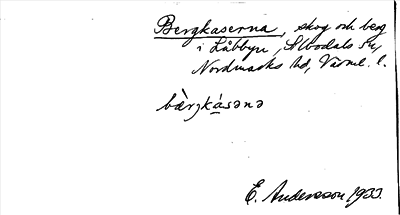 Bergkaserna, skog och berg
i Låbbyn, Älvdals sn,
Nordmarks hd, Värml. l.
bærjkásənə
E. Andersson 1933.